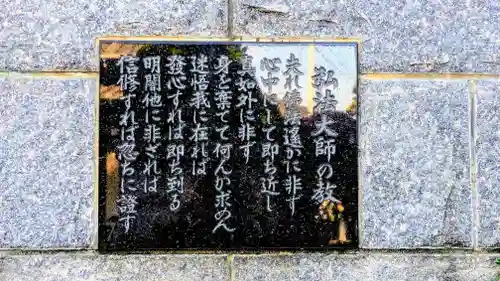 弘法大師の教
夫れ佛法遙かに非ず
心中にして即ち近し
真如外に非ず
身を棄てて何んか求めん
迷悟我に在れば
發心すれば即ち到る
明闇他に非ざれば
信修すれば忽ちに證す